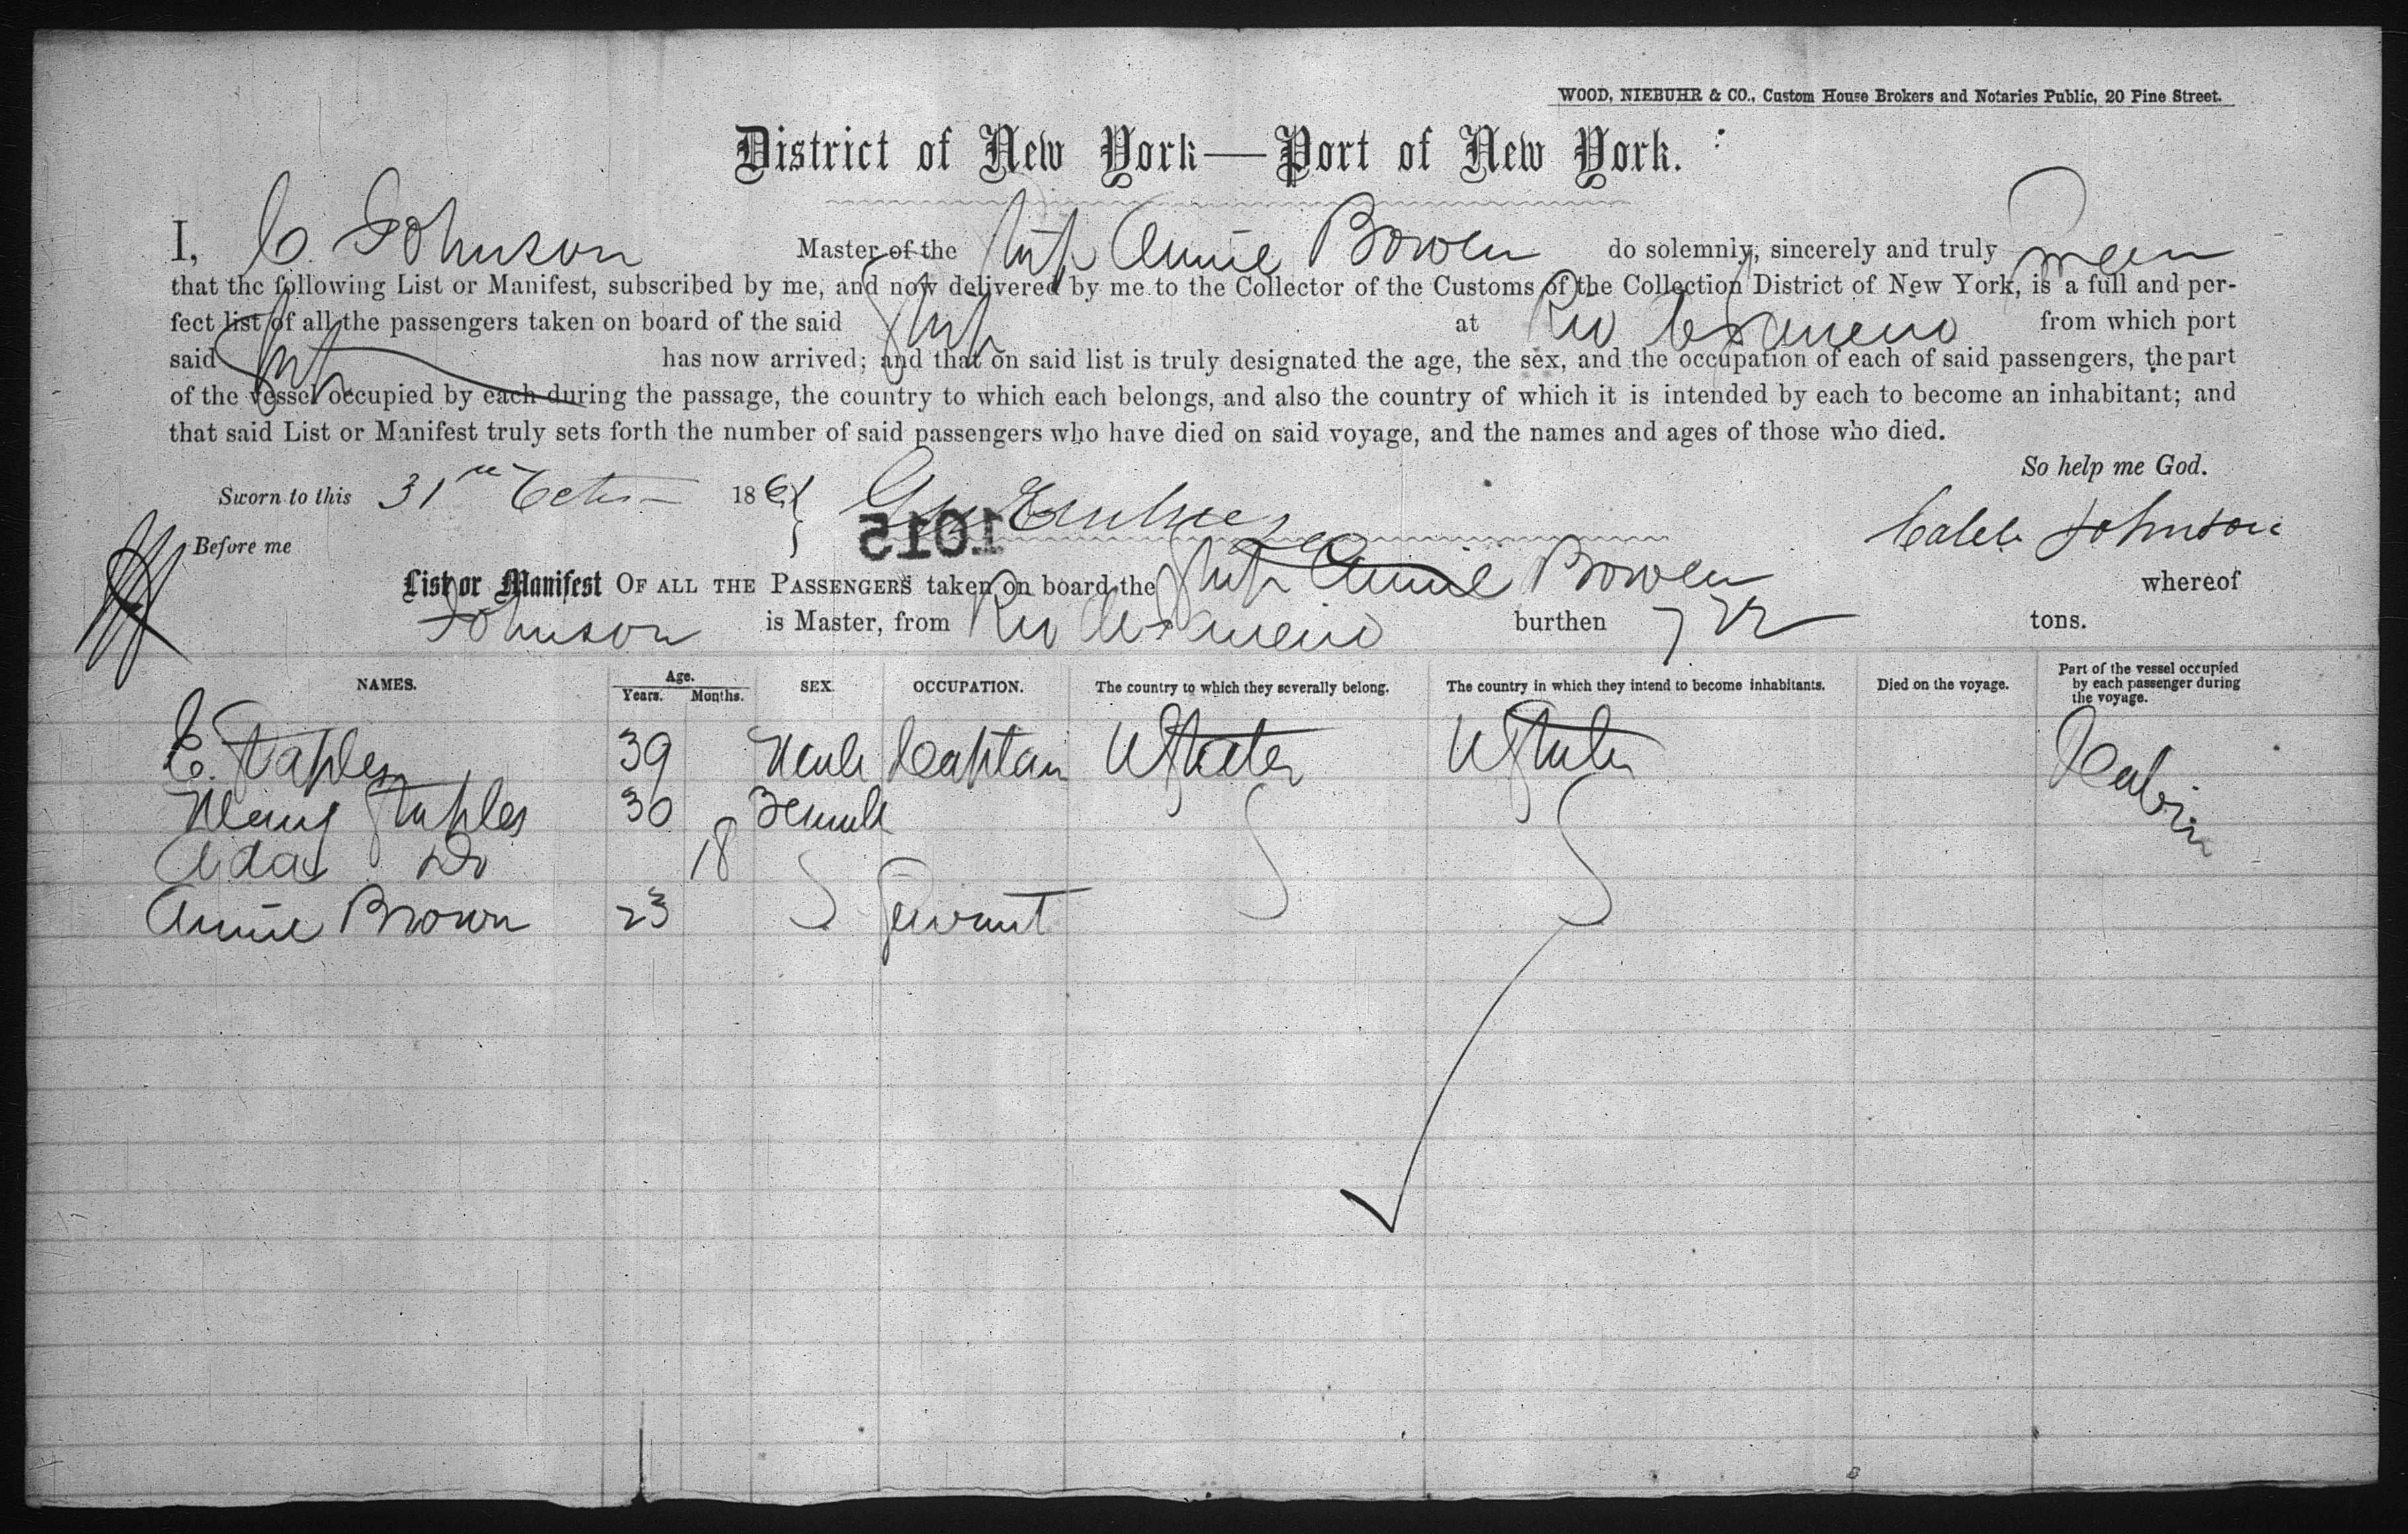 WOOD, NIEBUHR & CO., Custom House Brokers and Notaries Public, 20 Pine Street.
District of New York—Port of New York.
I, C. Johnson Master of the Ship Annie Bowen do solemnly, sincerely and truly Swear
that the following List or Manifest, subscribed by me, and now delivered by me to the Collector of the Customs of the Collection District of New York, is a full and per-
fect list of all the passengers taken on board of the said Ship at Rio de Janeiro from which port
said Ship has now arrived; and that on said list is truly designated the age, the sex, and the occupation of each of said passengers, the part
of the vessel occupied by each during the passage, the country to which each belongs, and also the country of which it is intended by each to become an inhabitant; and
that said List or Manifest truly sets forth the number of said passengers who have died on said voyage, and the names and ages of those who died.
So help me God.
Sworn to this 31st Octr 186
Caleb Johnson
Before me
1015
List or Manifest OF ALL THE PASSENGERS taken on board the Ship Annie Bowen whereof
Johnson is Master, from Rio de Janeiro burthen 722 tons.
NAMES. Age. Years. Months. SEX. OCCUPATION. The country to which they severally belong. The country in which they intend to become inhabitants. Died on the voyage. Part of the vessel occupied by each passenger during the voyage.
C. Staples 39 Male Captain U States U States Cabin
Mary Staples 30 Female
Ada Do 18
Annie Brown 23 Servant